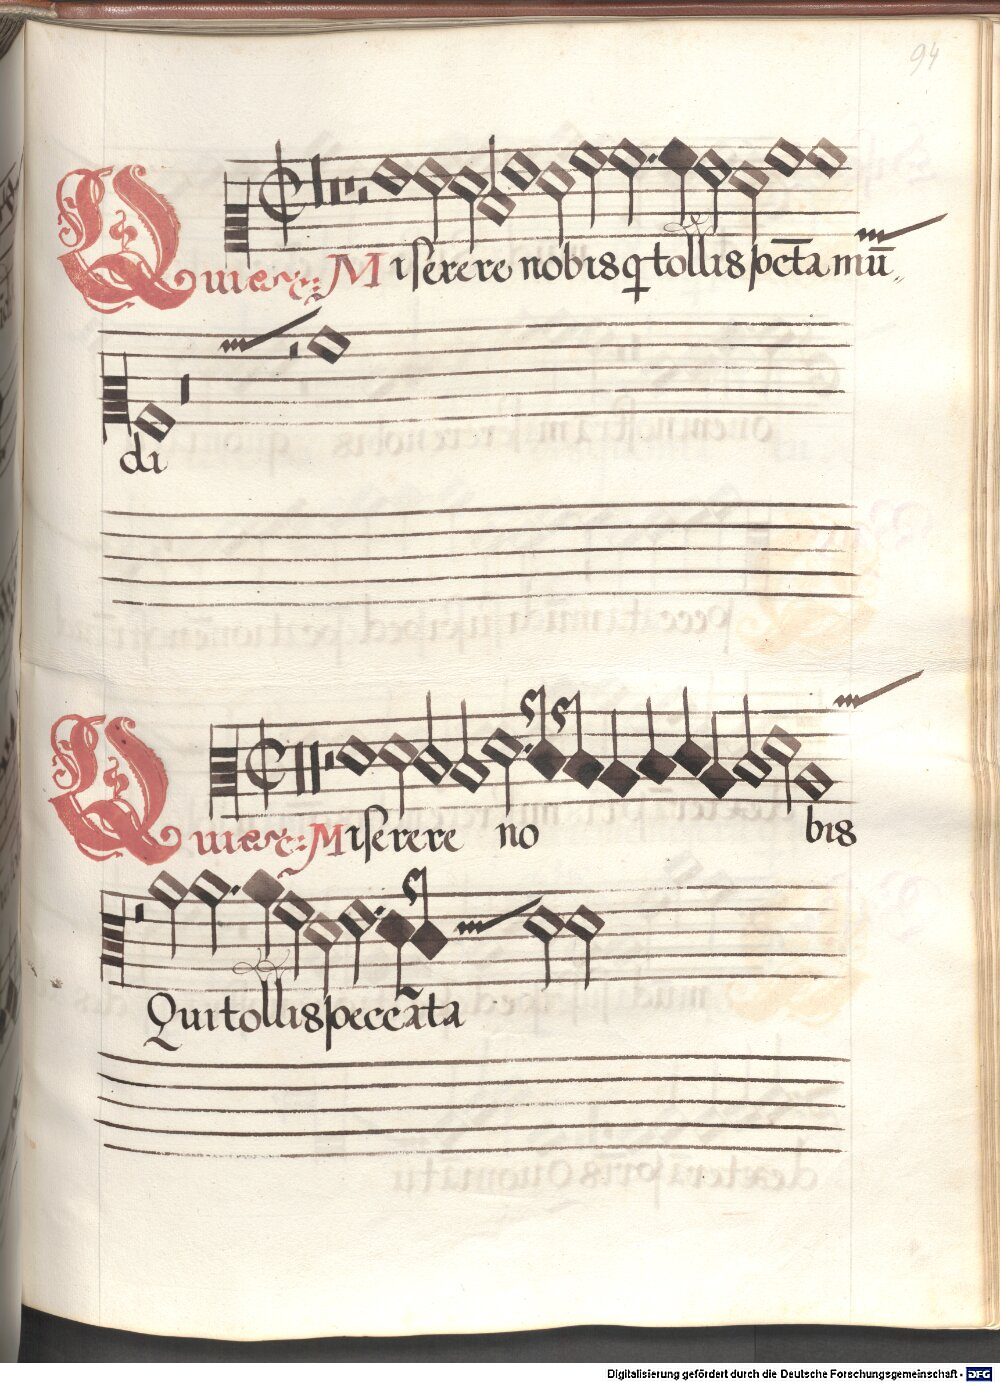 94
Qui ex: Miserere nobis q tollis pcta mū
di
Qui ex: Miserere no bis
Qui tollis peccāta
Digitalisierung gefördert durch die Deutsche Forschungsgemeinschaft - DFG